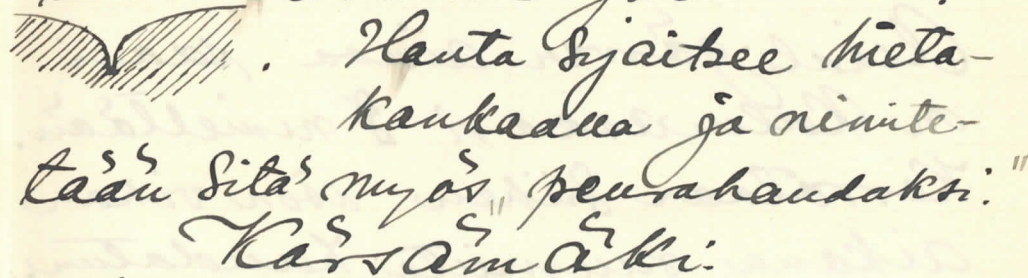 . Hauta sijaitsee hieta-
kankaalla ja nimite-
tään sitä myös „peurahaudaksi."
Kärsämäki.